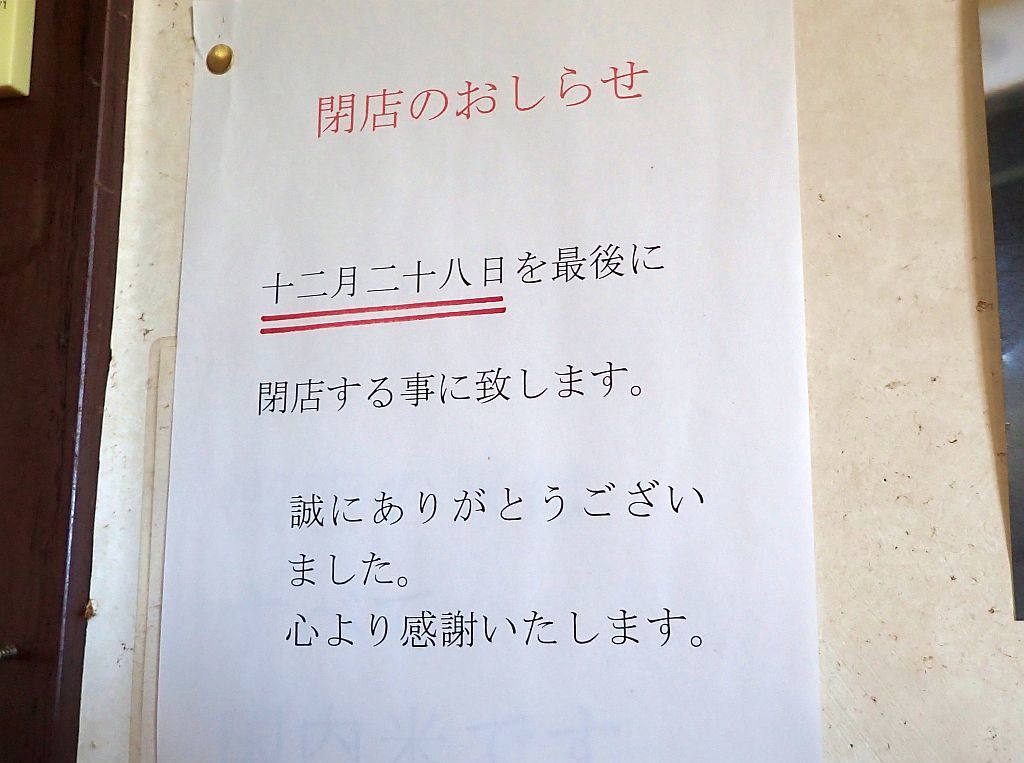 閉店のおしらせ
十二月二十八日を最後に
閉店する事に致します。
誠にありがとうござい
ました。
心より感謝いたします。